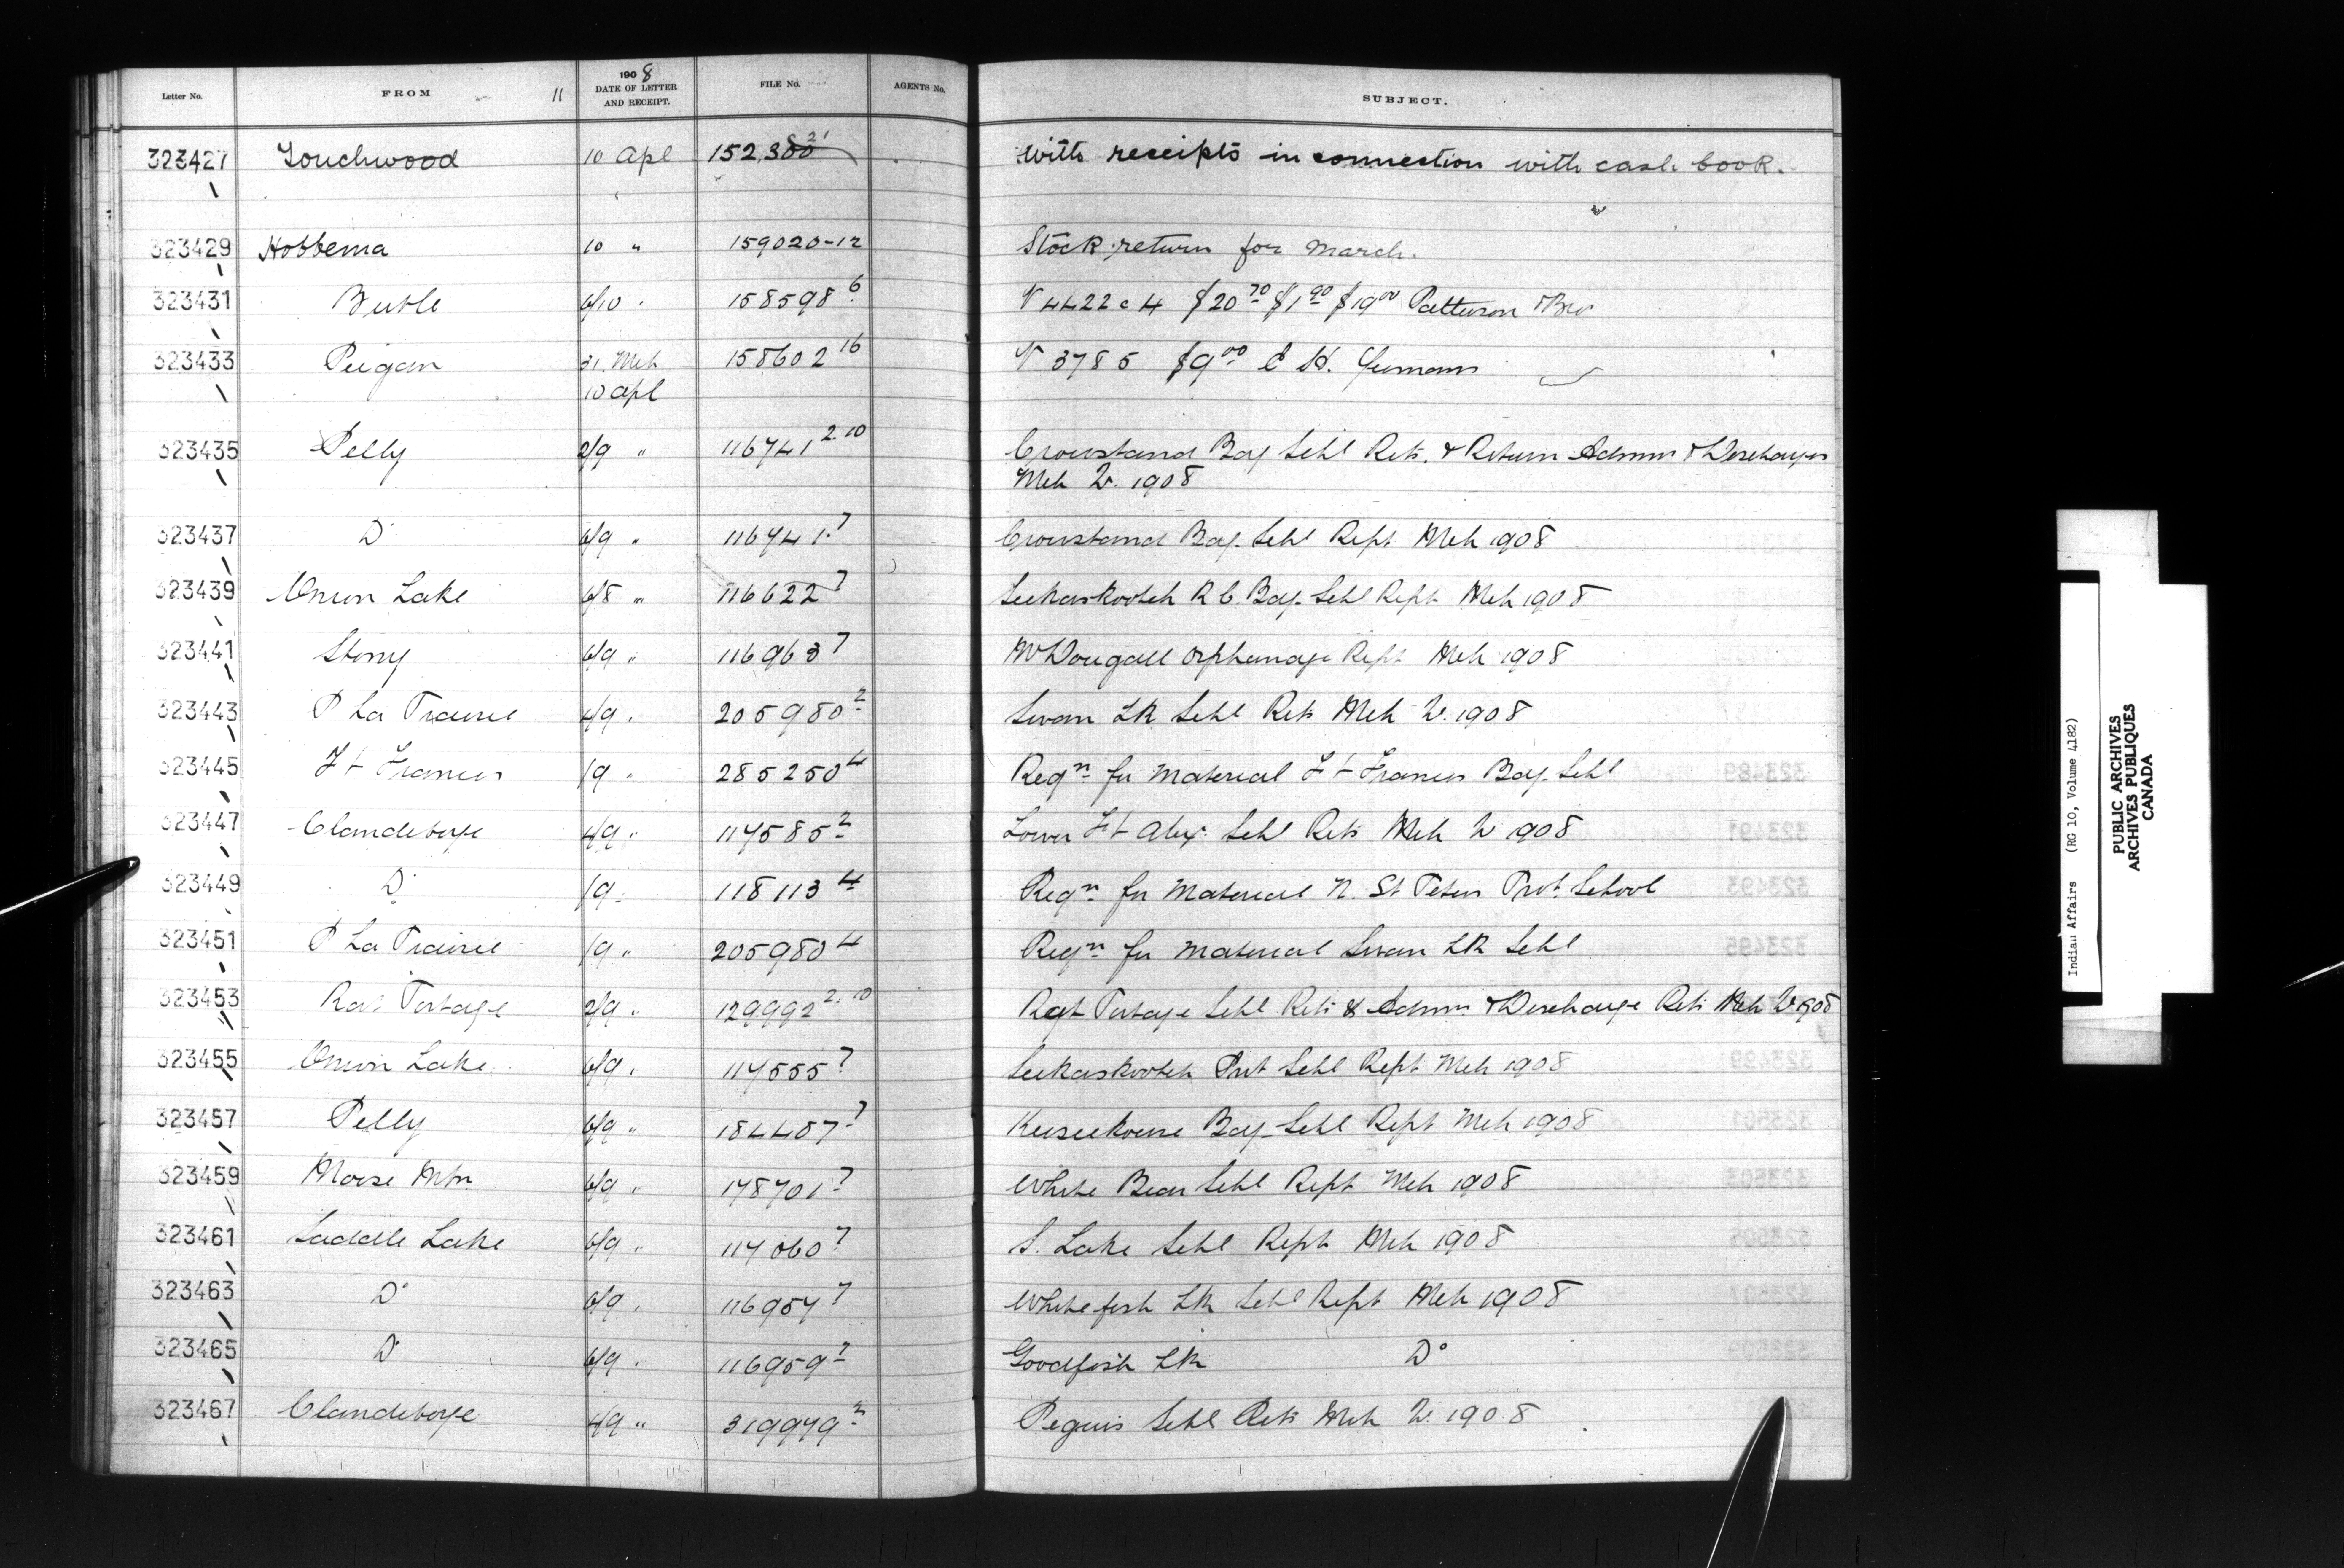 Letter No. FROM 11 1908 DATE OF LETTER AND RECEIPT. FILE No. AGENTS No. SUBJECT.
323427 Touchwood 10 Apl 152,300 21 with receipts in connection with cash book.
323429 Hobbema 10 " 159020-12 Stock return for March.
323431 Birtle 6/10 " 158598 6 V 4422 c 4 $20 70 $1 90 $19 00 Patterson & Bro
323433 Peigan 31 Mch 158602 16 V 3785 $9 00 C H.
10 Apl
323435 Pelly 2/9 " 116741 2.10 Crowstand Bdg Schl Rets. & Return Admns & Discharges
Mch Qr. 1908
323437 Do 6/9 " 116741 7 Crowstand Bdg. Schl Rept Mch 1908
323439 Onion Lake 6/8 " 116622 7 Seekaskootch R C. Bdg. Schl Rept Mch 1908
323441 Stony 6/9 " 116963 7 McDougall Orphanage Rept Mch 1908
323443 P La Prairie 4/9 " 205980 2 Swan Lk Schl Rets Mch Qr. 1908
323445 Ft Frances /9 " 285250 4 Reqn for Material Ft Frances Bdg. Schl
323447 Clandeboye 4/9 " 114585 2 Lower Ft Alex. Schl Rets Mch Qr 1908
323449 Do /9 " 118113 4 Reqn for Material N. St Peters Prot. School
323451 P La Prairie /9 " 205980 4 Reqn for Material Swan Lk Schl
323453 Rat Portage 2/9 " 129992 2.10 Rat Portage Schl Rets & Admns & Discharge Rets Mch Qr 1908
323455 Onion Lake 6/9 " 114555 7 Seekaskootch Prot Schl Rept Mch 1908
323457 Pelly 6/9 " 184407 7 Keeseekouse Bdg. Schl Rept Mch 1908
323459 Moose Mtn 6/9 " 178701 7 White Bear Schl Rept Mch 1908
323461 Saddle Lake 6/9 " 114060 7 S. Lake Schl Rept Mch 1908
323463 Do 6/9 " 116957 7 Whitefish Lk Schl Rept Mch 1908
323465 Do 6/9 " 116959 7 Goodfish Lk Do
323467 Clandeboye 4/9 " 319979 2 Peguis Schl Rets Mch Qr. 1908
Indian Affairs (RG 10, Volume 4182)
PUBLIC ARCHIVES
ARCHIVES PUBLIQUES
CANADA